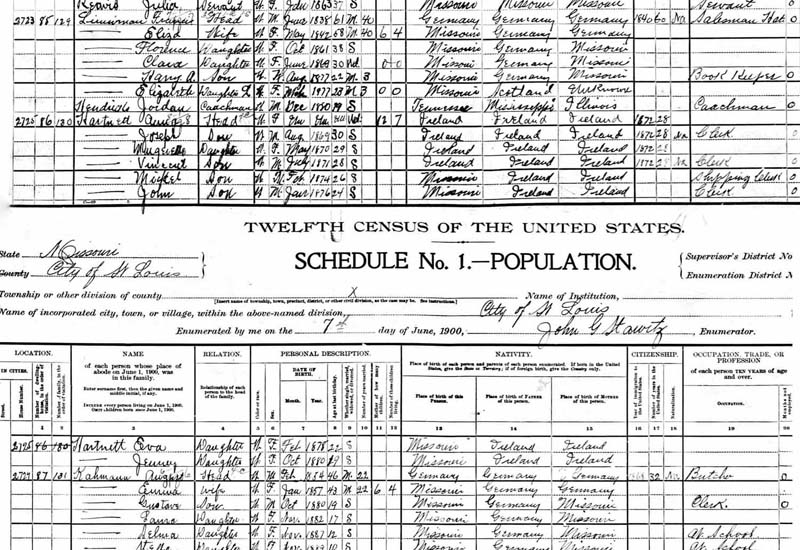 Servant W F 1863 37 S Missouri Missouri Missouri Servant 0
2723 85 129 Head W M June 1838 61 M 40 Germany Germany Germany 1840 60 Na Salesman Hat 0
Eliza Wife W F May 1842 58 M 40 6 4 Missouri Germany Germany
Florence Daughter W F Oct 1861 38 S Missouri Germany Missouri
Clara Daughter W F June 1869 30 Wd 0 0 Missouri Germany Missouri
Harry A. Son W M Aug 1877 22 M 3 Missouri Germany Missouri Book Keeper 0
Elizabeth Daughter L W F M 3 0 0 Missouri Scotland Unknown
Jordan Coachman M Dec 1880 19 S Tennessee Mississippi Illinois Coachman 0
2725 86 130 Hartnett Head W F Wd 12 7 Ireland Ireland Ireland 1872 28
Joseph Son W M Aug 1869 30 S Ireland Ireland Ireland 1872 28 Na Clerk 0
Daughter W F May 1870 29 S Ireland Ireland Ireland 1872 28
Vincent Son W M July 1871 28 S Ireland Ireland Ireland 1872 28 Na Clerk 0
Michel Son W M Feb 1874 26 S Missouri Ireland Ireland Shipping Clerk 0
John Son W M Jan 1876 24 S Missouri Ireland Ireland Clerk 0
TWELFTH CENSUS OF THE UNITED STATES.
State Missouri
County City of St Louis
SCHEDULE No. 1.—POPULATION.
Supervisor's District No
Enumeration District N
Township or other division of county X Name of Institution,
[Insert name of township, town, precinct, district, or other civil division, as the case may be. See instructions.]
Name of incorporated city, town, or village, within the above-named division, City of St Louis
Enumerated by me on the 7th day of June, 1900, John G Stawitz, Enumerator.
LOCATION. NAME RELATION. PERSONAL DESCRIPTION. NATIVITY. CITIZENSHIP. OCCUPATION, TRADE, OR PROFESSION
IN CITIES. of each person whose place of abode on June 1, 1900, was in this family. Relationship of each person to the head of the family. DATE OF BIRTH. Place of birth of each person and parents of each person enumerated. If born in the United States, give the State or Territory; if of foreign birth, give the Country only. of each person TEN YEARS of age and over.
Enter surname first, then the given name and middle initial, if any.
INCLUDE every person living on June 1, 1900. OMIT children born since June 1, 1900.
Street. House Number. Color or race. Sex. Month. Year. Age at last birthday. Place of birth of this PERSON. Place of birth of FATHER of this person. Place of birth of MOTHER of this person. Year of immigration to the United States. Number of years in the United States. Naturalization. OCCUPATION. Months not employed.
1 2 3 4 5 6 7 8 9 10 11 12 13 14 15 16 17 18 19 20
2725 86 130 Hartnett Eva Daughter W F Feb 1878 22 S Missouri Ireland Ireland
Jenney Daughter W F Oct 1880 19 S Missouri Ireland Ireland
2727 87 131 Kahmann August Head W M Feb 1854 46 M 22 Germany Germany Germany 32 Na Butcher 0
Emma Wife W F Jan 1857 43 M 22 6 4 Missouri Germany Germany
Gustave Son W M Oct 1880 19 S Missouri Germany Missouri Clerk 0
Laura Daughter W F Nov. 1882 17 S Missouri Germany Missouri
Selma Daughter W F Nov. 1887 12 S Missouri Germany Missouri At School 0
Daughter W F Nov. 1889 10 S Missouri Germany Missouri At School 0